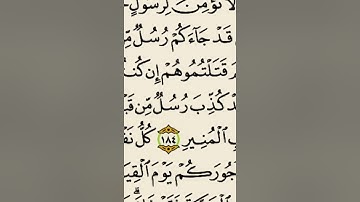 لَّا نُؤْمِنَ لِرَسُولٍ
قَدْ جَآءَكُمْ رُسُلٌ مِّ
مَ قَتَلْتُمُوهُمْ إِن كُنتُ
دْ كُذِّبَ رُسُلٌ مِّن قَبْ
بِ ٱلْمُنِيرِ ١٨٤ كُلُّ نَفْ
جُورَكُمْ يَوْمَ ٱلْقِيَ